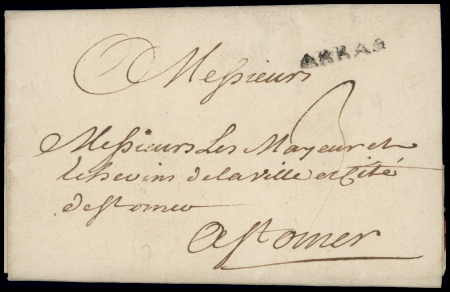 ARRAS
Messieurs
Messieurs Les Mayeur et
Echevins de la ville et Cité
de St omer
A St omer